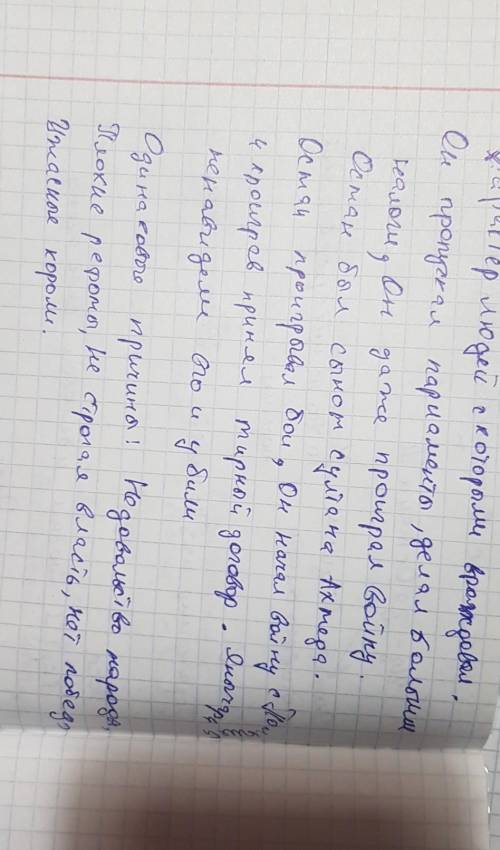 Характер людей с которыми враждовал.
Он пропускал парламенты, делал большим
налоги, Он даже проиграл войну.
Осман был сыном султана Ахмеда.
Осман проигрывал бои, Он начал войну с
и проиграв принял мирный договор. Янычары
ненавидели его и убили
Одинаковые причины! Недовальство народа,
Плохие реформы, не строгая власть, нет побед,
Ужасные короли.